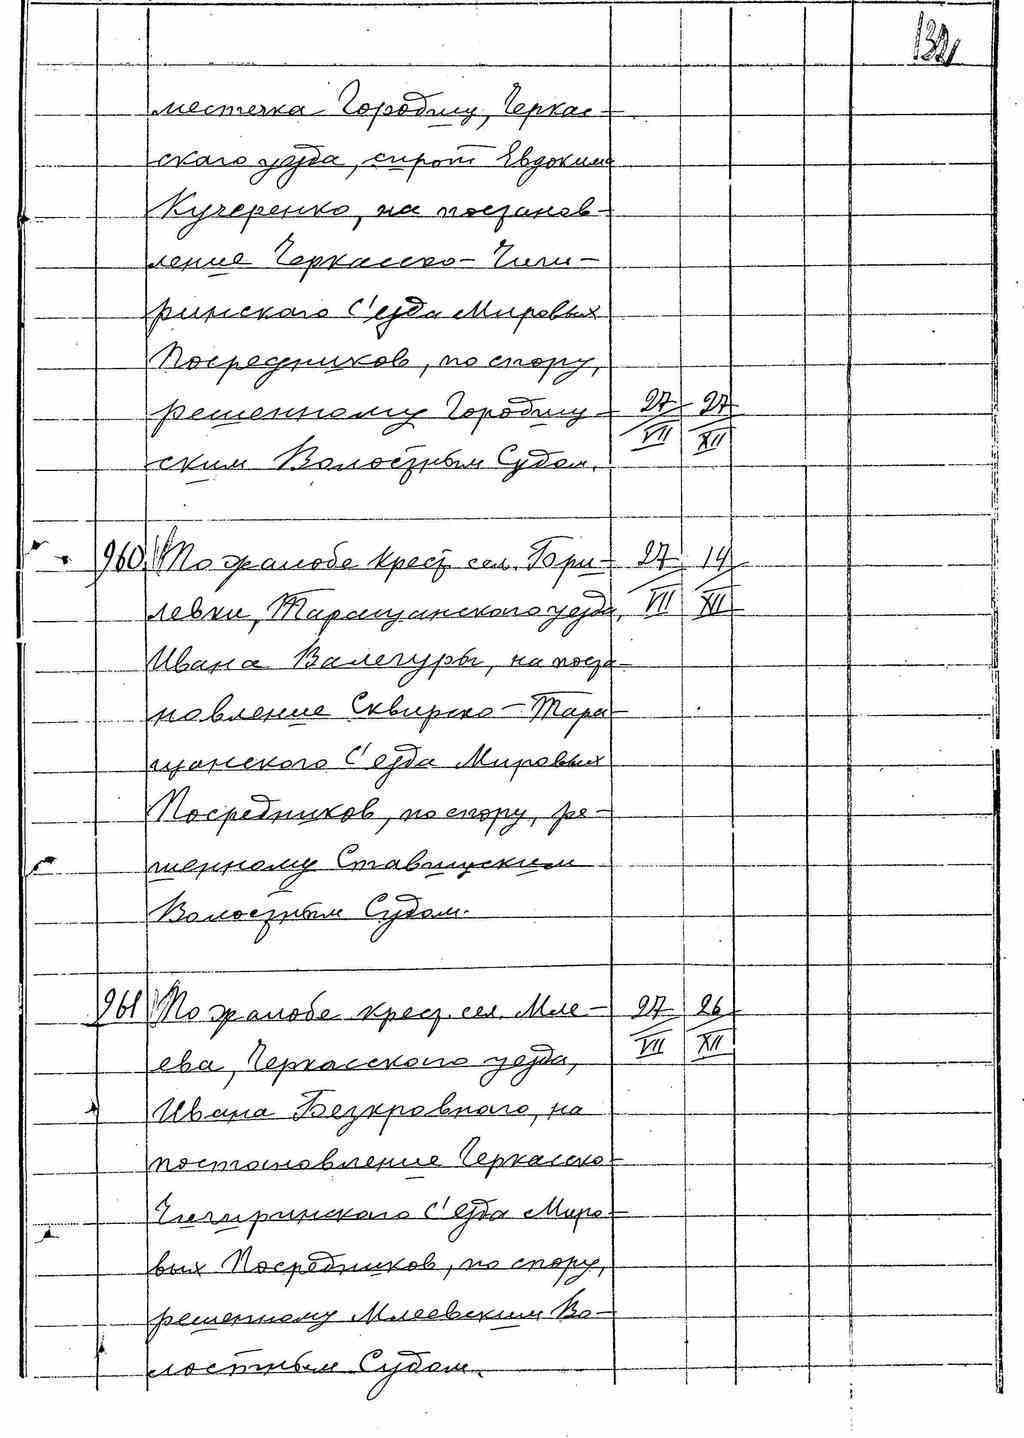 132
местечка Городищ, Черкас-
ского уезда, сирот Евдокима
Кучеренко, на постанов-
ление Черкасско-Чиги-
ринского С'езда Мировых
Посредников, по спору,
решенному Городищ- 27/VII 27/XII
ским Волостным Судом.
960. По жалобе крест. сел. 27/VII 14/XII
левки, Таращанского уезда,
Ивана Валегуры, на поста-
новление Сквирско-Тара-
щанского С'езда Мировых
Посредников, по спору, ре-
шенному Ставищским
Волостным Судом.
961 По жалобе крест. сел. Мле- 27/VII 26/XII
ева, Черкасского уезда,
Ивана Безкровного, на
постановление Черкасско-
Чигиринского С'езда Миро-
вых Посредников, по спору,
решенному Млеевским Во-
лостным Судом.